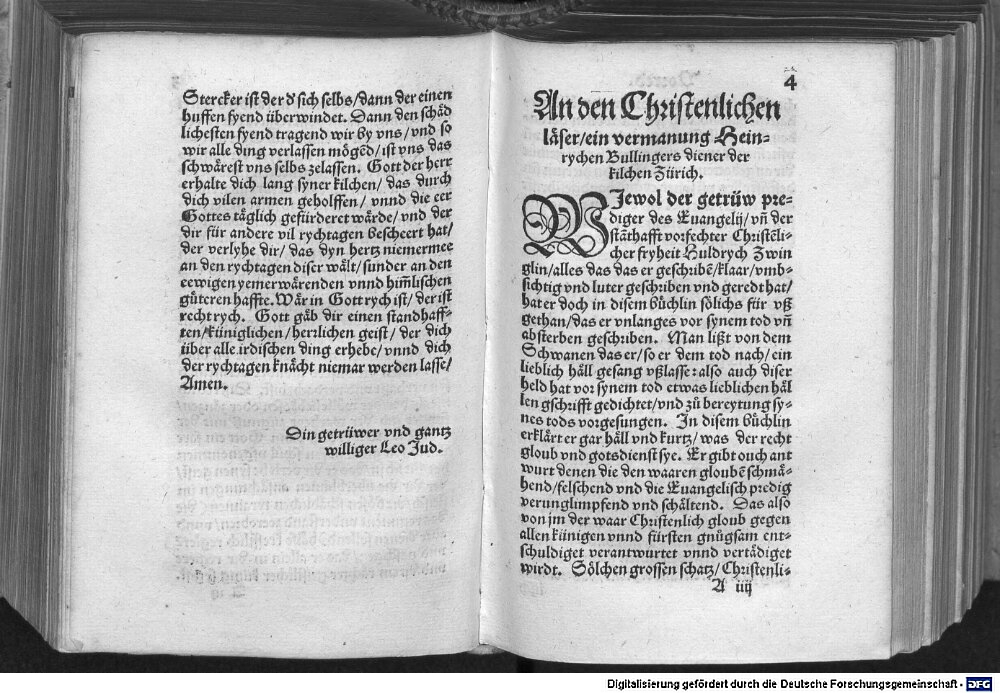 Stercker ist der d' sich selbs/dann der einen
huffen fyend überwindet. Dann den schäd
lichesten fyend tragend wir by vns/vnd so
wir alle ding verlassen mögēd/ist vns das
schwärest vns selbs zelassen. Gott der herr
erhalte dich lang syner kilchen/das durch
dich vilen armen geholffen/vnnd die eer
Gottes täglich gefürderet wärde/vnd der
dir für andere vil rychtagen bescheert hat/
der verlyhe dir/das dyn hertz niemermee
an den rychtagen diser wält/sunder an den
eewigen yemerwärenden vnnd him̄lischen
güteren haffte. Wär in Gott rych ist/der ist
recht rych. Gott gäb dir einen standhaff-
ten/küniglichen/herzlichen geist/der dich
über alle irdischen ding erhebe/vnnd dich
der rychtagen knächt niemar werden lasse/
Amen.
Din getrüwer vnd gantz
williger Leo Jud.
4
An den Christenlichen
läser/ein vermanung Hein-
rychen Bullingers diener der
kilchen Zürich.
WJewol der getrüw pre-
diger des Euangelij/vn̄ der
stāthafft vorfechter Christēli-
cher fryheit Huldrych Zwin
glin/alles das das er geschribē/klaar/vmb-
sichtig vnd luter geschriben vnd geredt hat/
hat er doch in disem büchlin sölichs für vß
gethan/das er vnlanges vor synem tod vn̄
absterben geschriben. Man lißt von dem
Schwanen das er/so er dem tod nach/ein
lieblich häll gesang vßlasse: also auch diser
held hat vor synem tod etwas lieblichen häl
len gschrifft gedichtet/vnd zů bereytung sy-
nes tods vorgesungen. In disem büchlin
erklärt er gar häll vnd kurtz/was der recht
gloub vnd gotsdienst sye. Er gibt ouch ant
wurt denen die den waaren gloubē schmä-
hend/felschend vnd die Euangelisch predig
verunglimpfend vnd schältend. Das also
von jm der waar Christenlich gloub gegen
allen künigen vnnd fürsten gnůgsam ent-
schuldiget verantwurtet vnnd vertädiget
wirdt. Sölchen grossen schatz/Christenli-
A iiij
Digitalisierung gefördert durch die Deutsche Forschungsgemeinschaft - DFG